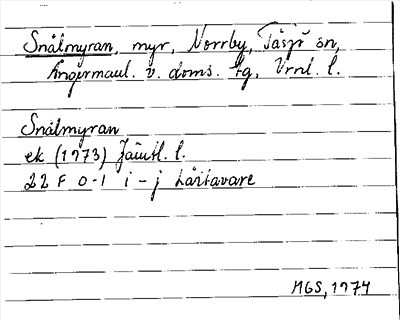 Snålmyran, myr, Norrby, Tåsjö sn,
Ångermanl. v. doms. tg, Vrnl. l.
Snålmyran
ek (1973) Jämtl. l.
22 F 0-1 i-j Lårtavare
MGS, 1974